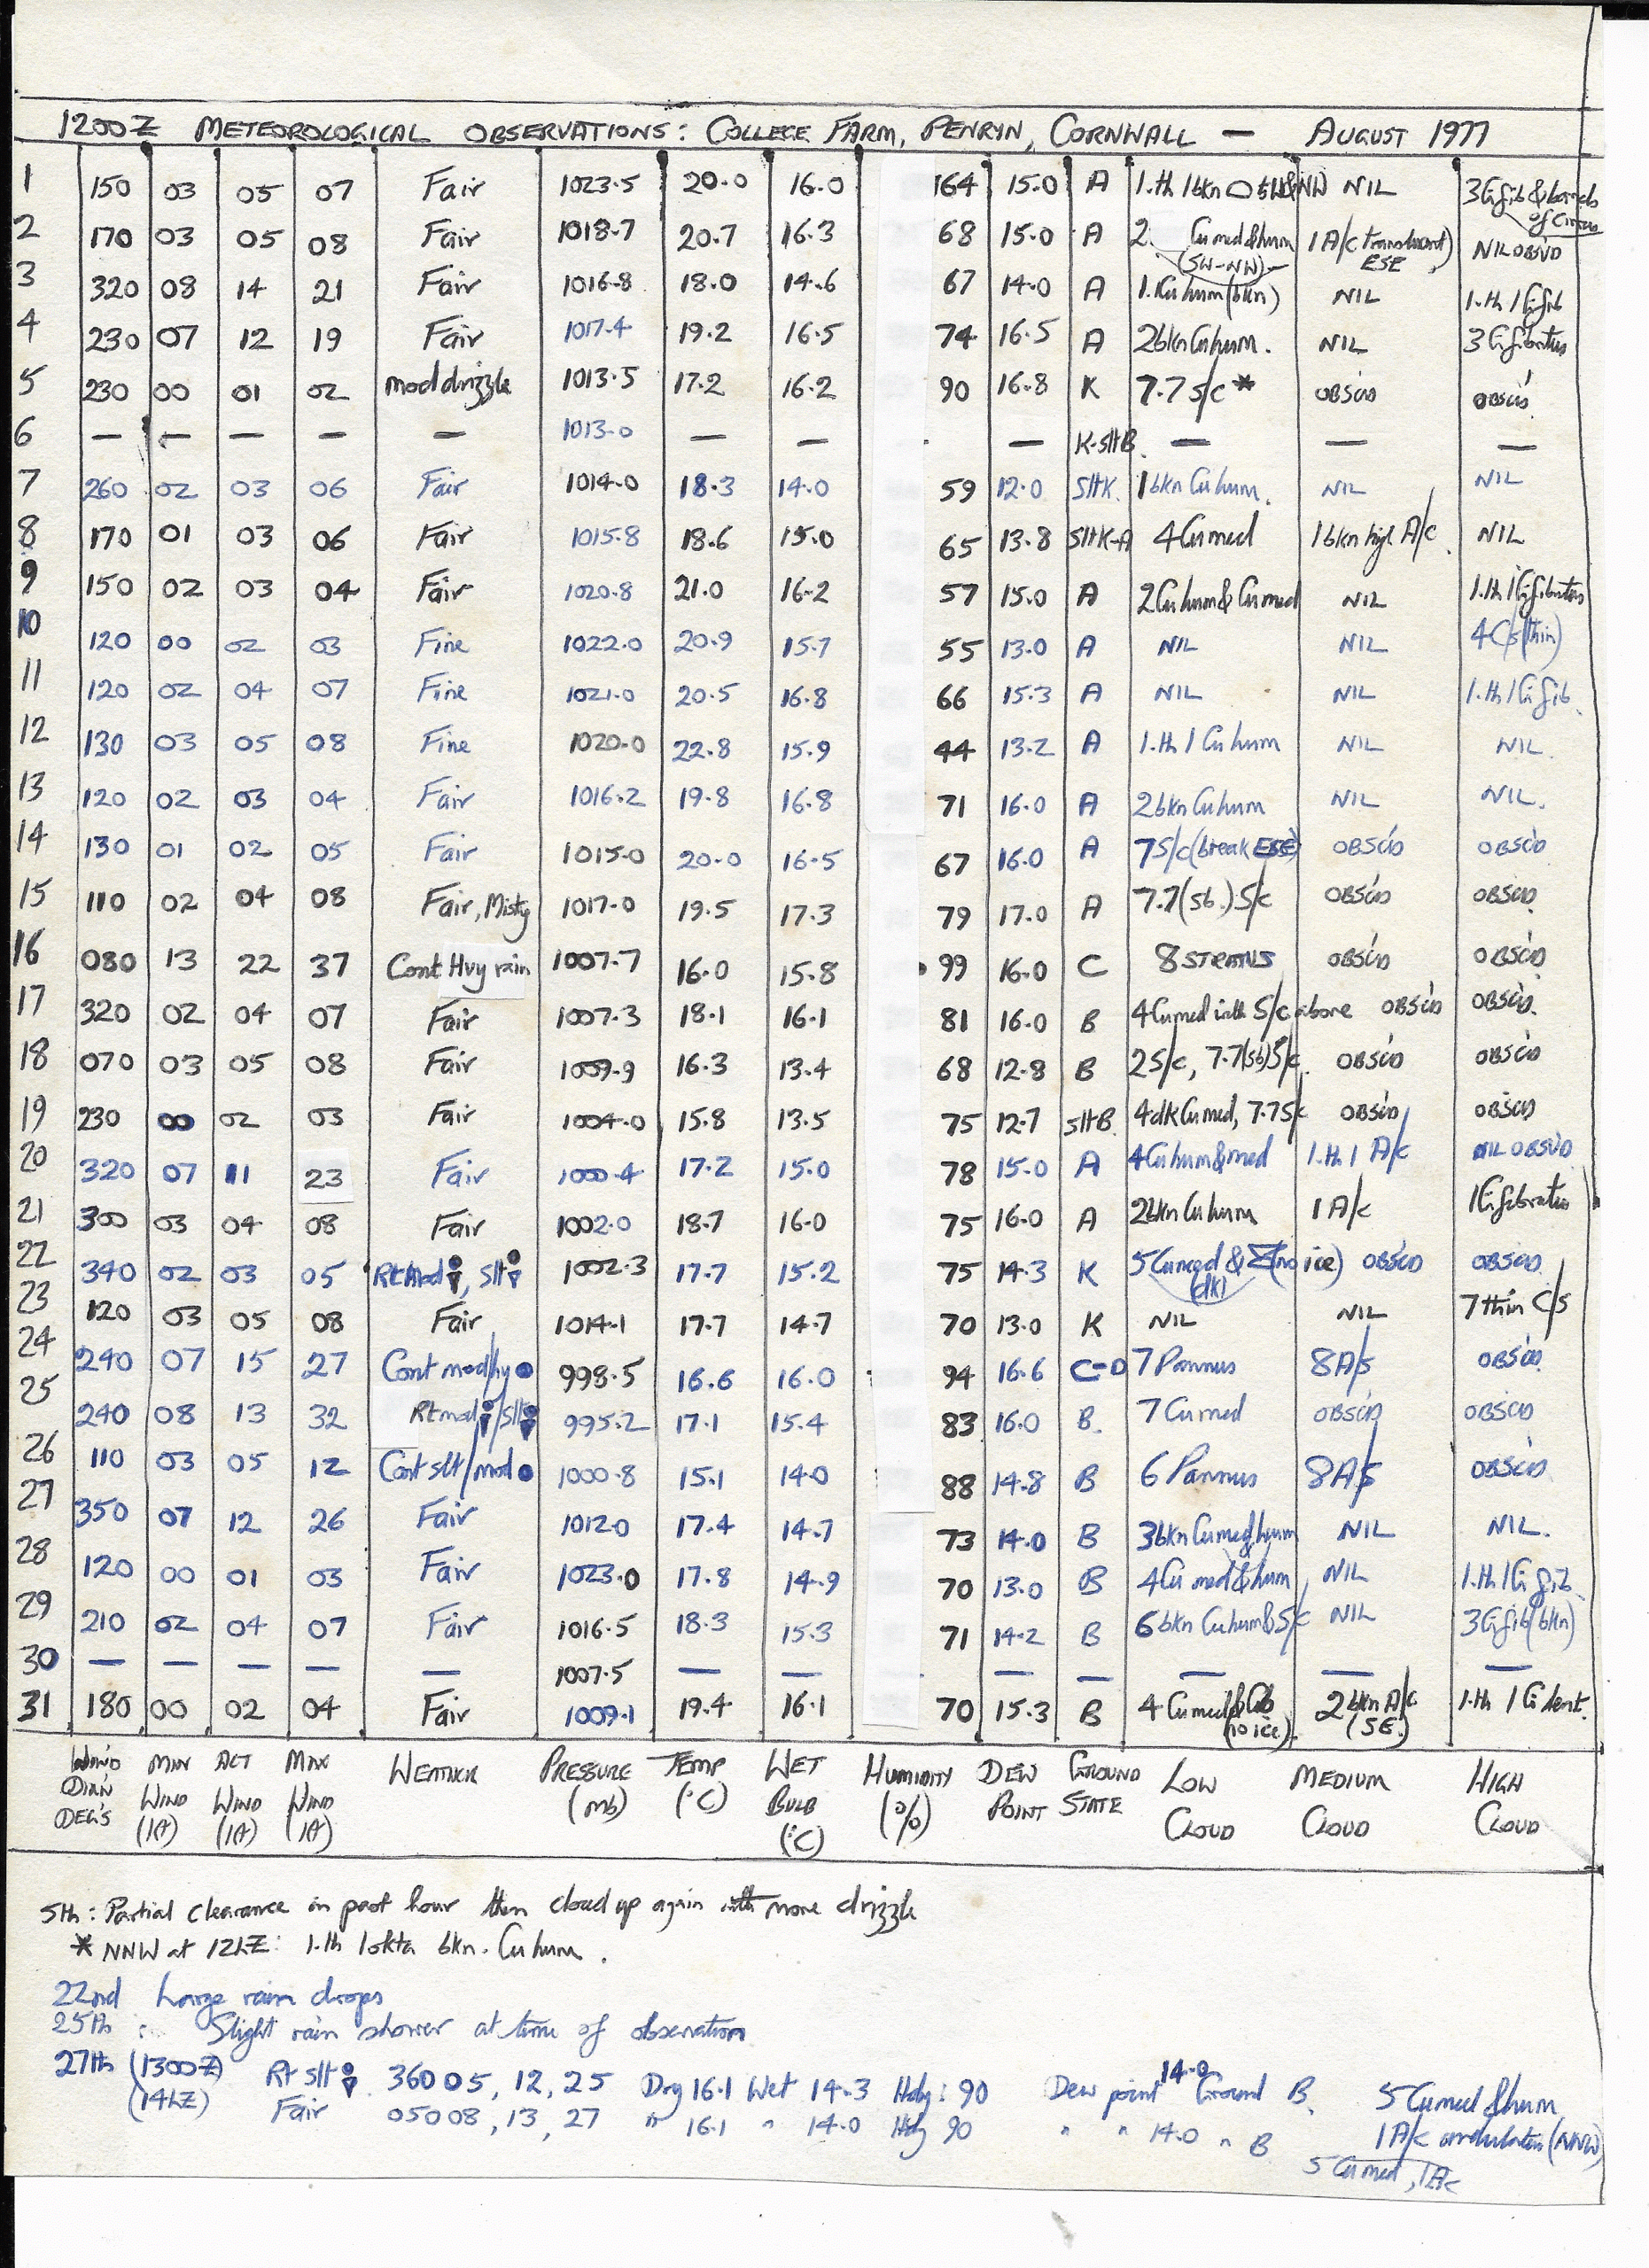 1200Z METEOROLOGICAL OBSERVATIONS: COLLEGE FARM, PENRYN, CORNWALL — AUGUST 1977
1 150 03 05 07 Fair 1023.5 20.0 16.0 64 15.0 A 1.th 1bkn NIL 3Cifib & bands of Cirrus
2 170 03 05 08 Fair 1018.7 20.7 16.3 68 15.0 A 2 Cumed&hum (SW-NW) 1 A/c translucent) ESE NIL OBSVD
3 320 08 14 21 Fair 1016.8 18.0 14.6 67 14.0 A 1.Cuhum(bkn) NIL 1.th 1Cifib
4 230 07 12 19 Fair 1017.4 19.2 16.5 74 16.5 A 2bknCuhum. NIL 3 Cifibratus
5 230 00 01 02 mod drizzle 1013.5 17.2 16.2 90 16.8 K 7.7 S/c * OBSC'D OBSC'D
6 — — — — — 1013.0 — — — K-SltB — — —
7 260 02 03 06 Fair 1014.0 18.3 14.0 59 12.0 SltK. 1bkn Cuhum. NIL NIL
8 170 01 03 06 Fair 1015.8 18.6 15.0 65 13.8 SltK-A 4Cumed 1bkn high A/c NIL
9 150 02 03 04 Fair 1020.8 21.0 16.2 57 15.0 A 2Cuhum & Cumed NIL 1.th 1Cifibratus
10 120 00 02 03 Fine 1022.0 20.9 15.7 55 13.0 A NIL NIL 4Cs(thin)
11 120 02 04 07 Fine 1021.0 20.5 16.8 66 15.3 A NIL NIL 1.th 1Cifib.
12 130 03 05 08 Fine 1020.0 22.8 15.9 44 13.2 A 1.th 1 Cuhum NIL NIL.
13 120 02 03 04 Fair 1016.2 19.8 16.8 71 16.0 A 2bkn Cuhum NIL NIL.
14 130 01 02 05 Fair 1015.0 20.0 16.5 67 16.0 A 7S/c(break ESE) OBSC'D OBSC'D
15 110 02 04 08 Fair, Misty 1017.0 19.5 17.3 79 17.0 A 7.7(sb.)S/c OBSC'D OBSC'D
16 080 13 22 37 Cont Hvy rain 1007.7 16.0 15.8 99 16.0 C 8 STRATUS OBSC'D OBSC'D
17 320 02 04 07 Fair 1007.3 18.1 16.1 81 16.0 B 4Cumed with S/c above OBSC'D OBSC'D.
18 070 03 05 08 Fair 1009.9 16.3 13.4 68 12.8 B 2S/c, 7.7(sb)S/c. OBSC'D OBSC'D
19 230 00 02 03 Fair 1004.0 15.8 13.5 75 12.7 SltB. 4dkCumed, 7.7S/c OBSC'D OBSC'D
20 320 07 11 23 Fair 1000.4 17.2 15.0 78 15.0 A 4Cuhum&med 1.th 1 A/c NIL OBSVD
21 300 03 04 08 Fair 1002.0 18.7 16.0 75 16.0 A 2bknCuhum 1 A/c 1Cifibratus
22 340 02 03 05 Rt Mod, Slt 1002.3 17.7 15.2 75 14.3 K 5Cumed & (no ice) (dk) OBSC'D OBSC'D
23 120 03 05 08 Fair 1014.1 17.7 14.7 70 13.0 K NIL NIL 7 thin C/s
24 240 07 15 27 Cont mod/hy ● 998.5 16.6 16.0 94 16.6 C-D 7 Pannus 8A/s OBSC'D
25 240 08 13 32 Rt mod/slt 995.2 17.1 15.4 83 16.0 B. 7 Cumed OBSC'D OBSC'D
26 110 03 05 12 Cont slt/mod ● 1000.8 15.1 14.0 88 14.8 B 6 Pannus 8A/s OBSC'D
27 350 07 12 26 Fair 1012.0 17.4 14.7 73 14.0 B 3bkn Cumed/hum NIL NIL.
28 120 00 01 03 Fair 1023.0 17.8 14.9 70 13.0 B 4Cu med&hum NIL 1.th 1Ci fib.
29 210 02 04 07 Fair 1016.5 18.3 15.3 71 14.2 B 6 bkn Cuhum&S/c NIL 3Cifib(bkn)
30 — — — — — 1007.5 — — — — — — —
31 180 00 02 04 Fair 1009.1 19.4 16.1 70 15.3 B 4 Cumed&Cb (no ice). 2 bkn A/c (SE.) 1.th 1 Ci dent.
WIND DIR'N DEG'S MIN WIND (kt) ACT WIND (kt) MAX WIND (kt) WEATHER PRESSURE (mb) TEMP (°C) WET BULB (°C) HUMIDITY (%) DEW POINT GROUND STATE LOW CLOUD MEDIUM CLOUD HIGH CLOUD
5th: Partial clearance in past hour then cloud up again with more drizzle
* NNW at 12hZ: 1.th 1okta bkn. Cuhum.
22nd Large rain drops
25th : Slight rain shower at time of observation
27th (1300Z) Rt slt 360 05, 12, 25 Dry 16.1 Wet 14.3 Hdy: 90 Dew point 14.0 Ground B. 5 Cumed &hum
(14hZ) Fair 050 08, 13, 27 " 16.1 " 14.0 Hdy 90 " " 14.0 " B 1 A/c undulatus (NNW)
5 Cumed, 1A/c